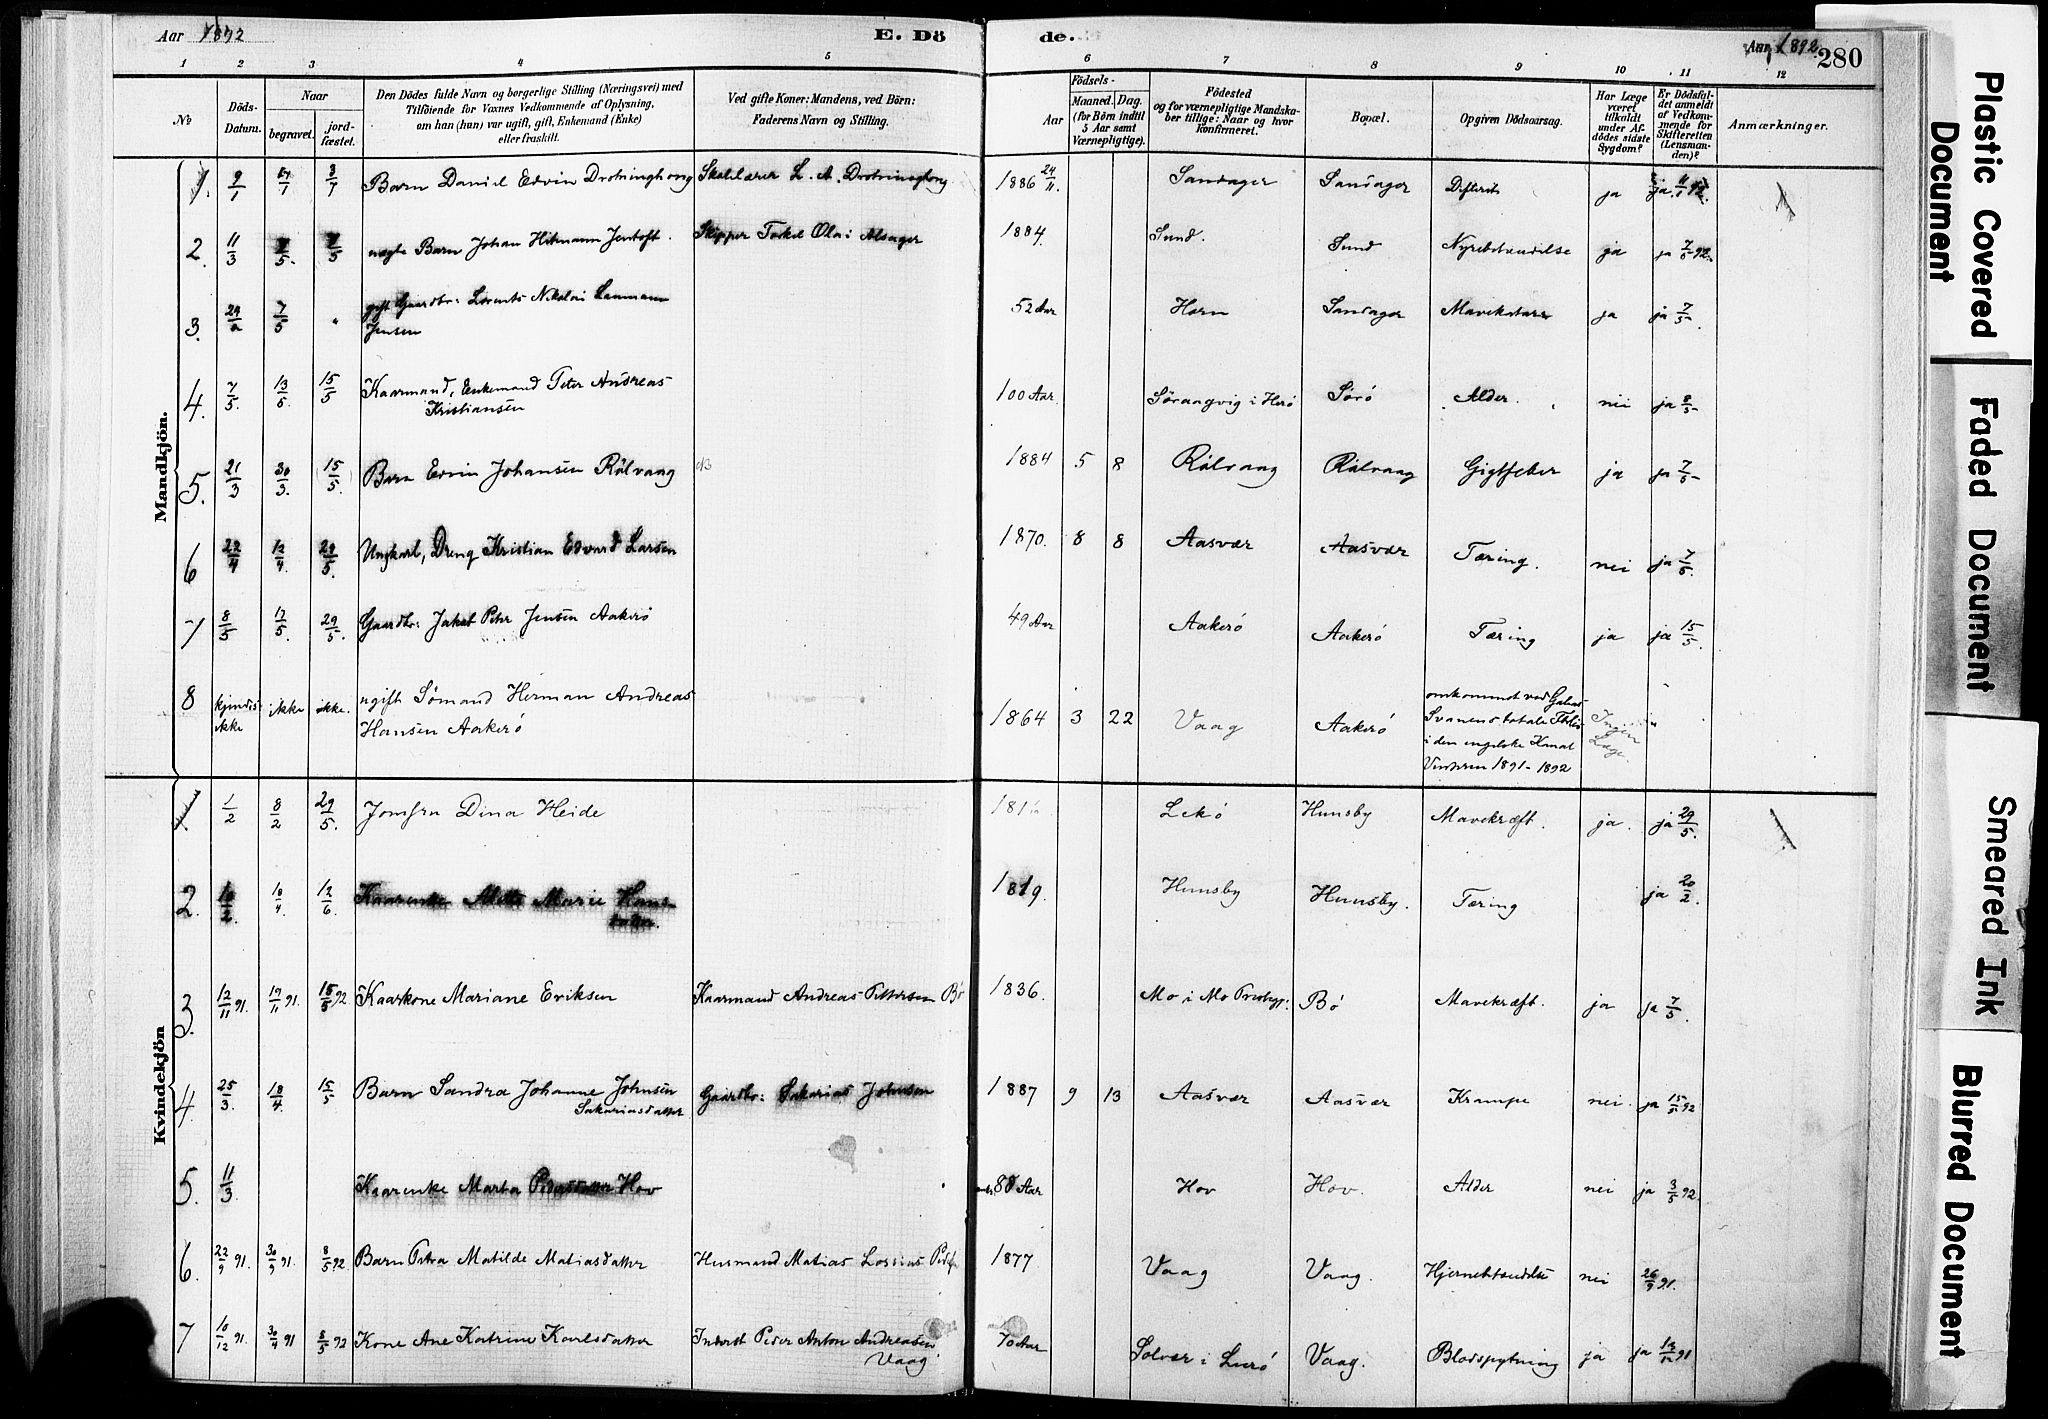 Aar 1892 E. Dö de. Aar 1892. 280
1 2 3 4 5 6 7 8 9 10 11 12
№
Döds-Datum.
Naar
begravet.
jord-fæstet.
Den Dödes fulde Navn og borgerlige Stilling (Næringsvei) med
Tilföiende for Voxnes Vedkommende af Oplysning,
om han (hun) var ugift, gift, Enkemand (Enke)
eller fraskilt.
Ved gifte Koner: Mandens, ved Börn:
Faderens Navn og Stilling.
Födsels-
Aar
Maaned.
Dag.
(for Börn indtil
5 Aar samt
Værnepligtige).
Födested
og for værnepligtige Mandska-
ber tillige: Naar og hvor
konfirmeret.
Bopæl.
Opgiven Dödsaarsag.
Har Læge
været
tilkaldt
under Af-
dödes sidste
Sygdom?
Er Dödsfal-
det anmeldt
af Vedkom-
mende for
Skifteretten
(Lensman-
den)?
Anmærkninger.
Mandkjön.
1. 9/1 Barn Daniel Edvin Drotninghong Skolelærer L. A. Drotninghong 1886 24/11 Sandager Sandager Difterit ja ja 11/1 92.
2. 11/3 Barn Johan Hitmann Jentoft. Skipper Alsager 1884. Sund. Sund Nyrebetændelse ja ja 7/5 92.
3. 7/5 " gift Gaardbr: Lorents Nikolai
Jensen 52 Aar Horn Sandager ja ja 7/5
4. 7/5. 13/5. 15/5 Kaarmand, Enkemand Peter Andreas
Kristiansen 100 Aar. i Herö Sörö Alder. nei ja 8/5
5. 21/3 30/3. 15/5. Barn Edvin Johansen Rölvaag 1884 5 8 Rölvaag Rölvaag Gigtfeber ja ja 7/5
6 22/4 12/4. 29/5. Ungkarl, Dreng Kristian Edvard Larsen 1870. 8 8 Aasvær Aasvær Tæring. nei ja 7/5.
7 8/5 17/5. 29/5. Gaardbr: Jakob Peter Jensen Aakerö 49 Aar Aakerö Aakerö Tæring ja ja 15/5.
8 kjendes
ikke ikke ikke. ugift Sömand Herman Andreas
Hansen Aakerö 1864 3 22 Vaag Aakerö omkommet ved Galeas
Svanens totale Forlis
i den engelske Kanal
Vinteren 1891-1892 Ingen
Læge. "
Kvindekjön
1 1/2 8/2 29/5. Jomfru Dina Heide Lekö Hunsby Mavekræft. ja. ja 29/5.
2. 10/2. 10/4. 12/6. Kaarenke Mette Marie Hans-
datter. 1819. Hunsby Hunsby. Tæring ja 20/2.
3. 12/11 91. 19/11 91. 15/5 92 Kaarkone Mariane Eriksen Kaarmand Andreas Pettersen Bö 1836. Mo i Mo Præstgj: Bö Mavekræft. ja ja 7/5.
4. 25/3. 18/4. 15/5 Barn Sandra Johanne Johnsen
Sakariasdatter Gaardbr: Sakarias Johnsen 1887 9 13 Aasvær Aasvær Krampe nei. ja 15/5 92
5. 11/3. Kaarenke Marta Pedersdatter Hov 88 Aar Hov Hov. Alder nei ja 3/5 92.
6. 22/9 91. 30/9 91. 8/5 92 Barn Petra Matilde Matiasdatter Husmand Matias Lossius 1877 Vaag Vaag. Hjernebetændelse nei 26/9 91.
7 10/12 91. 30/4 91 8/5 92 Kone Ane Katrine Karlsdatter Inderst Peder Anton Andreasen
Vaag 70 Aar Solvær i Lurö Vaag. Blodspytning ja ja 91
Plastic Covered
Document
Faded Document
Smeared Ink
Blurred Document